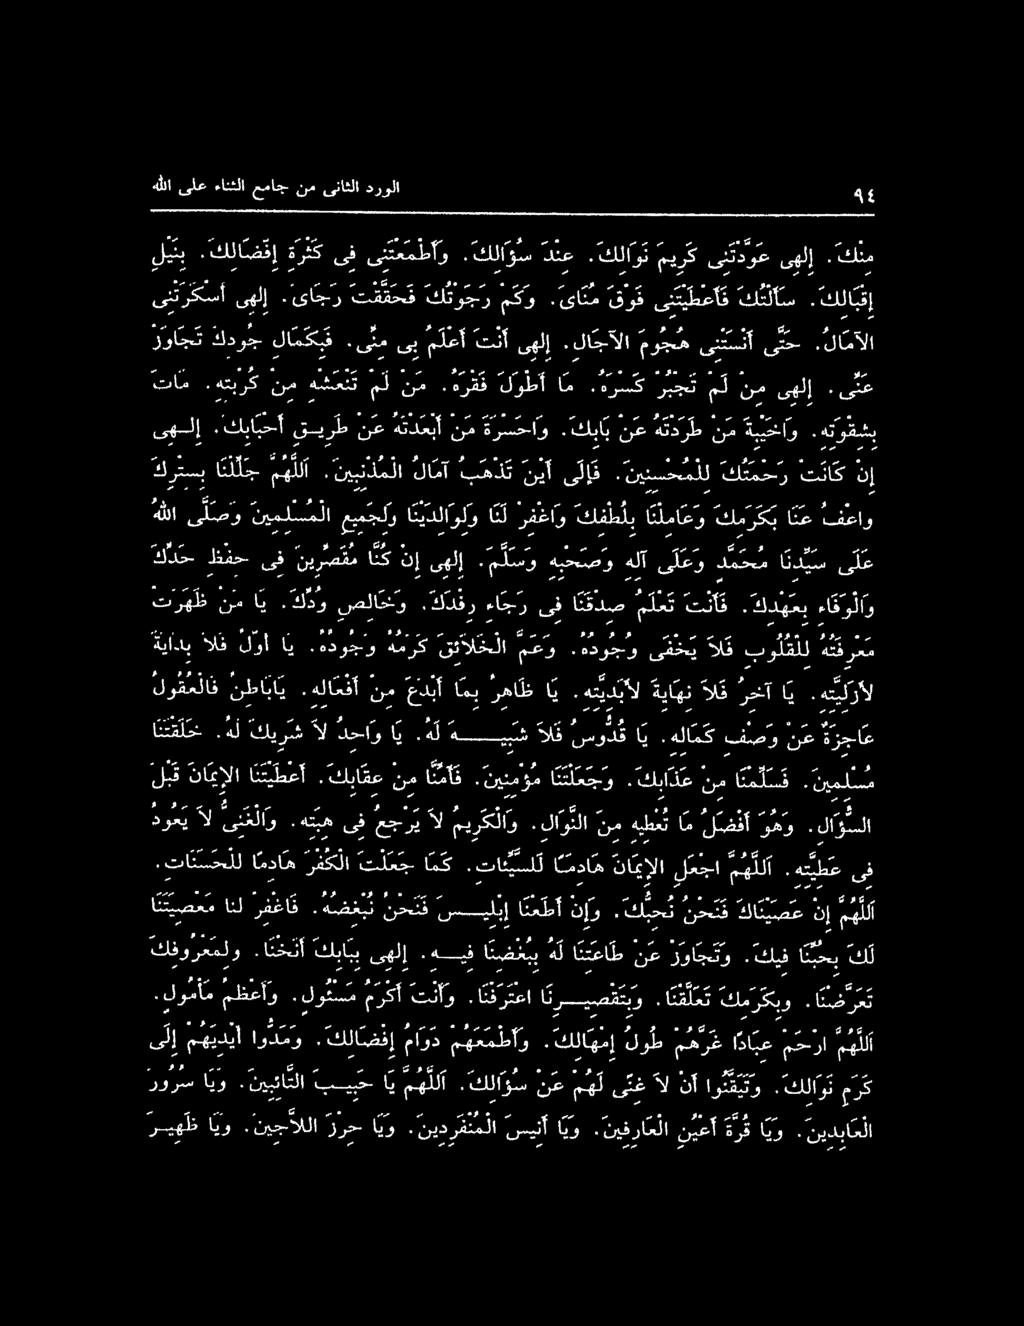 ٩٤ الورد الثانى من جامع الثناء على الله
مِنْكَ. إِلهِى عَوَّدْتَنِى كَرِيمَ نَوَالِكَ. عِنْدَ سُؤَالِكَ. وَأَطْمَعْتَنِى فِى كَثْرَةِ إِفْضَالِكَ. بِنَيْلِ
إِقْبَالِكَ. سَأَلْتُكَ فَأَعْطَيْتَنِى فَوْقَ مُنَاىَ. وَكَمْ رَجَوْتُكَ فَحَقَّقْتَ رَجَاىَ. إِلهِى أَسْكَرَتْنِى
الآمَالُ. حَتَّى أَنْسَتْنِى هُجُومَ الآجَالِ. إِلهِى أَنْتَ أَعْلَمُ بِى مِنِّى. فَبِكَمَالِ جُودِكَ تَجَاوَزْ
عَنِّى. إِلهِى مَنْ لَمْ تَجْبُرْ كَسْرَهُ. مَا أَطْوَلَ فَقْرَهُ. مَنْ لَمْ تَنْعَشْهِ مِنْ كُرْبَتِهِ. مَاتَ
بِشِقْوَتِهِ. وَاخَيْبَةَ مَنْ طَرَدْتَهُ عَنْ بَابِكَ. وَاحَسْرَةَ مَنْ أَبْعَدْتَهُ عَنْ طَرِيـقِ أَحْبَابِكَ. إِلـهِى
إِنْ كَانَتْ رَحْمَتُكَ لِلْمُحْسِنِينَ. فَإِلَى أَيْنَ تَذْهَبُ آمَالُ الْمُذْنِبِينَ. اَللَّهُمَّ جَلِّلْنَا بِسِتْرِكَ
وَاعْفُ عَنَّا بِكَرَمِكَ وَعَامِلْنَا بِلُطْفِكَ وَاغْفِرْ لَنَا وَلِوَالِدَيْنَا وَلِجَمِيعِ الْمُسْلِمِينَ وَصَلَّى اللهُ
عَلَى سَيِّدِنَا مُحَمَّدٍ وَعَلَى آلِهِ وَصَحْبِهِ وَسَلَّمَ. إِلهِى إِنْ كُنَّا مُقَصِّرِينَ فِى حِفْظِ حَدِّكَ
وَالْوَفَاءِ بِعَهْدِكَ. فَأَنْتَ تَعْلَمُ صِدْقَنَا فِى رَجَاءِ رِفْدِكَ. وَخَالِصِ وُدِّكَ. يَا مَنْ ظَهَرَتْ
مَعْرِفَتُهُ لِلْقُلُوبِ فَلاَ يَخْفَى وُجُودُهُ. وَعَمَّ الْخَلاَئِقَ كَرَمُهُ وَجُودُهُ. يَا أَوَّلُ فَلاَ بِدَايَةَ
لأَزَلِيَّتِهِ. يَا آخِرُ فَلاَ نِهَايَةَ لأَبَدِيَّتِهِ. يَا ظَاهِرُ بِمَا أَبْدَعَ مِنْ أَفْعَالِهِ. يَابَاطِنُ فَالْعُقُولُ
عَاجِزَةٌ عَنْ وَصْفِ كَمَالِهِ. يَا قُدُّوسُ فَلاَ شَبِيـــهَ لَهُ. يَا وَاحِدُ لاَ شَرِيكَ لَهُ. خَلَقْتَنَا
مُسْلِمِينَ. فَسَلِّمْنَا مِنْ عَذَابِكَ. وَجَعَلْتَنَا مُؤْمِنِينَ. فَأَمِّنَّا مِنْ عِقَابِكَ. أَعْطَيْتَنَا الإِيمَانَ قَبْلَ
السُّؤَالِ. وَهُوَ أَفْضَلُ مَا تُعْطِيهِ مِنَ النَّوَالِ. وَالْكَرِيمُ لاَ يَرْجِعُ فِى هِبَتِهِ. وَالْغَنِىُّ لاَ يَعُودُ
فِى عَطِيَّتِهِ. اَللَّهُمَّ اجْعَلِ الإِيمَانَ هَادِمًا لِلسَّيِّئَاتِ. كَمَا جَعَلْتَ الْكُفْرَ هَادِمًا لِلْحَسَنَاتِ.
اَللَّهُمَّ إِنْ عَصَيْنَاكَ فَنَحْنُ نُحِبُّكَ. وَإِنْ أَطَعْنَا إِبْلِيــسَ فَنَحْنُ نُبْغِضُهُ. فَاغْفِرْ لنا مَعْصِيَتَنَا
لَكَ بِحُبِّنَا فِيكَ. وَتَجَاوَزْ عَنْ طَاعَتِنَا لَهُ بِبُغْضِنَا فِيــهِ. إِلهِى بِبَابِكَ أَنَخْنَا. وَلِمَعْرُوفِكَ
تَعَرَّضْنَا. وَبِكَرَمِكَ تَعَلَّقْنَا. وَبِتَقْصِيــرِنَا اعْتَرَفْنَا. وَأَنْتَ أَكْرَمُ مَسْئُولٍ. وَأَعْظَمُ مَأْمُولٍ.
اَللَّهُمَّ ارْحَمْ عِبَادًا غَرَّهُمْ طُولُ إِمْهَالِكَ. وَأَطْمَعَهُمْ دَوَامُ إِفْضَالِكَ. وَمَدُّوا أَيْدِيَهُمْ إِلَى
كَرَمِ نَوَالِكَ. وَتَيَقَّنُوا أَنْ لاَ غِنًى لَهُمْ عَنْ سُؤَالِكَ. اَللَّهُمَّ يَا حَبِيــبَ التَّائِبِينَ. وَيَا سُرُورَ
الْعَابِدِينَ. وَيَا قُرَّةَ أَعْيُنِ الْعَارِفِينَ. وَيَا أَنِيسَ الْمُنْفَرِدِينَ. وَيَا حِرْزَ اللاَّجِينَ. وَيَا ظَهِيـرَ